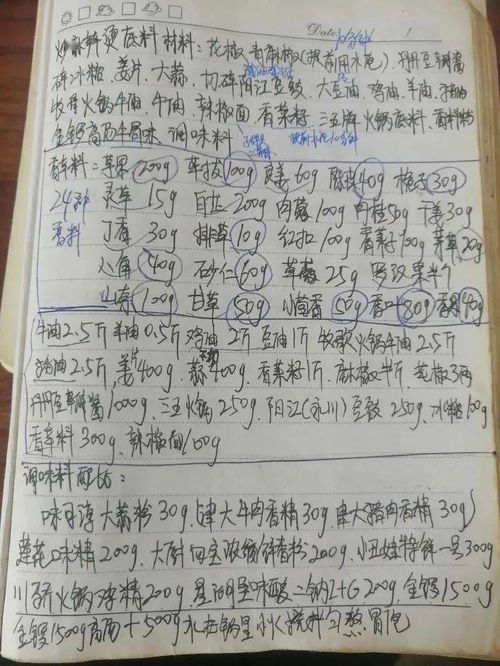 Date
10分钟
炒麻辣烫底料 材料:花椒 青麻椒(提前用水泡) 丹丹豆瓣酱
碎冰糖 姜片、大蒜、切碎阳江豆豉、大豆油 鸡油、羊油、猪油
牧歌火锅牛油、牛油、辣椒面、香菜籽、三五牌火锅底料、香料粉
金锣高汤 调味料
香料:草果200g 荜拨100g 良姜60g 陈皮40g 栀子30g
24种 灵草 15g 白芷 200g 肉蔻100g 肉桂50g 干姜30g
香料 丁香 30g 排草10g 红扣100g 香菜籽100g 茅草20g
八角 40g 砂仁60g 草蔻 25g 罗汉果半个
山奈 100g 甘草 50g 小茴香 50g 香叶80g 香果40g
牛油2.5斤 羊油0.5斤 鸡油 2斤 豆油1斤 牧歌火锅牛油 2.5斤
猪油2.5斤,姜片400g 蒜400g、香菜籽1斤、麻辣椒半斤、花椒3两
丹丹豆瓣酱1000g、三五火锅250g、阳江(永川)豆豉 250g、冰糖100g
香草料300g、辣椒面100g
调味料配比:
味可淳大蒜粉30g、肆大牛肉香精30g 肆大猪肉香精30g
莲花味精200g、大厨四宝 200g、小丑娃特鲜一号300g
川骄火锅浮精200g、星湖呈味酸二钠I+G 200g、金锣1500g
金锣1500g高汤+500g水在锅里小火搅拌匀熬冒泡